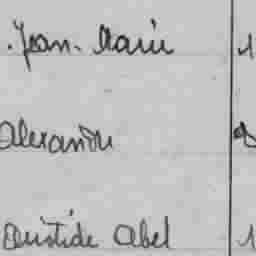 . Jean-Marie 1
Alexandre
Aristide Abel 1